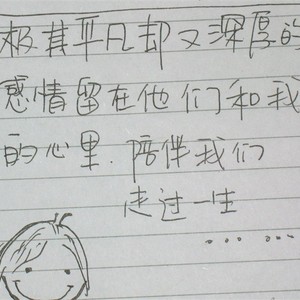 极其平凡却又深厚的
感情留在他们和我
的心里.陪伴我们
走过一生
... ...